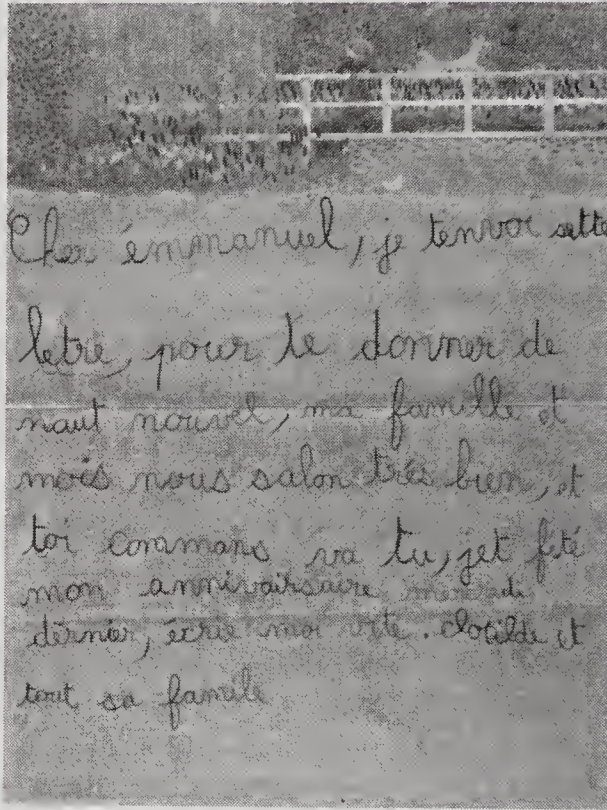 Cher émmanuel, je tenvoi sette
letre, pour te donner de
naut nouvel, ma famille et
mois nous salon très bien, et
toi commans va tu, jet fété
mon annivairsaire mercredi
dérnier, écrie moi vite. Clotilde et
tout sa famile